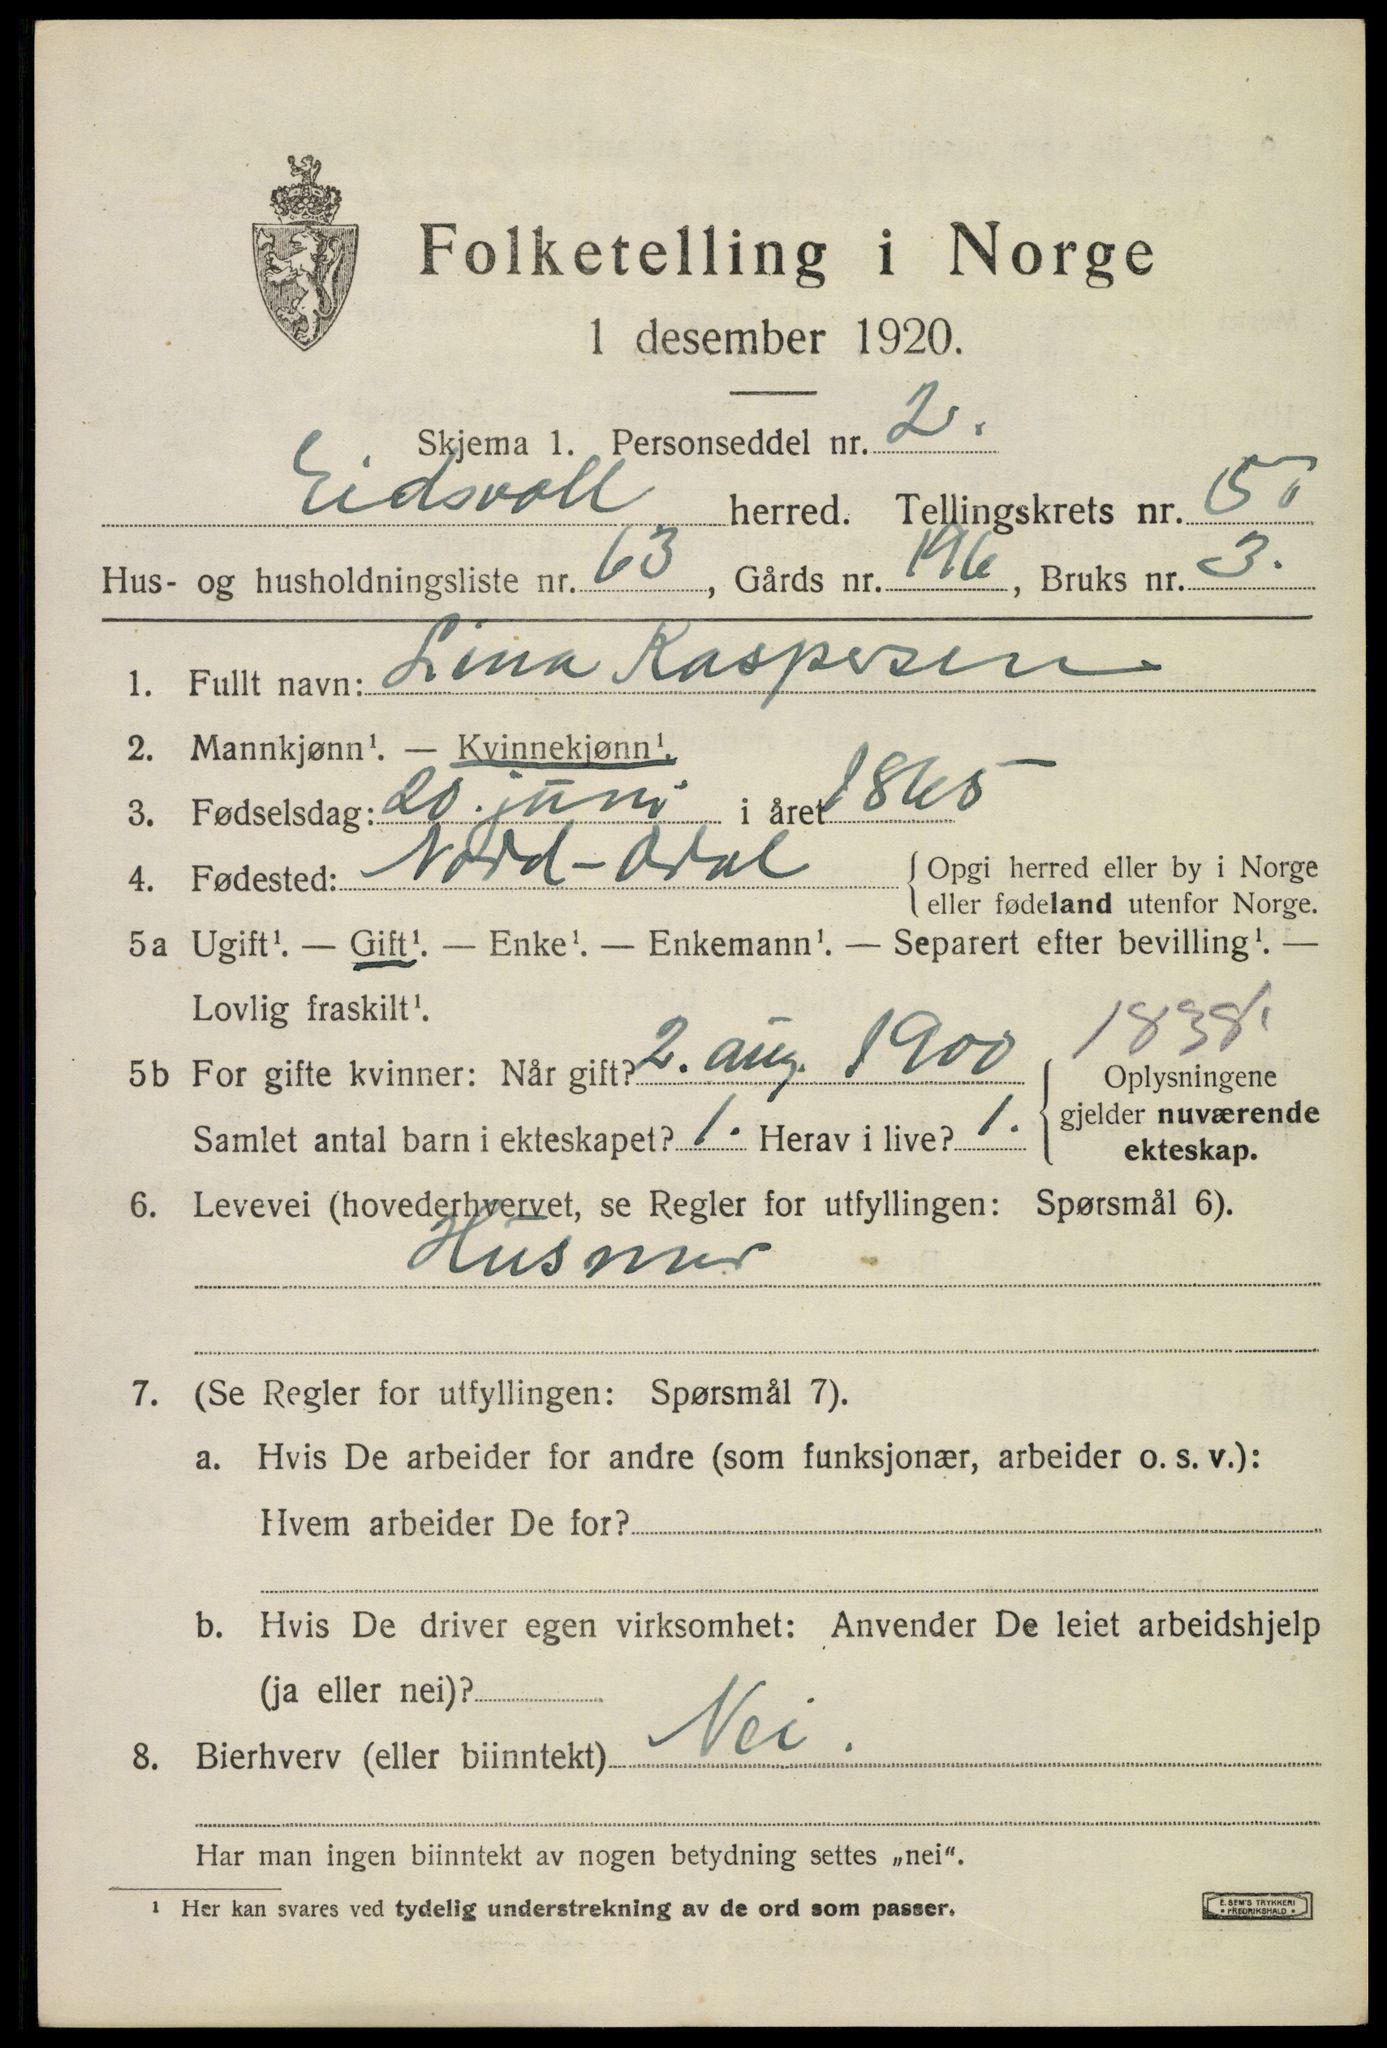 Folketelling i Norge
1 desember 1920.
Skjema 1. Personseddel nr. 2.
Eidsvoll herred. Tellingskrets nr. 5.
Hus- og husholdningsliste nr. 63, Gårds nr. 196, Bruks nr. 3.
1. Fullt navn: Lina Kaspersen
2. Mannkjønn¹. — Kvinnekjønn¹.
3. Fødselsdag: 20. juni i året 1865
4. Fødested: Nord-Odal { Opgi herred eller by i Norge
eller fødeland utenfor Norge.
5a Ugift¹. — Gift¹. — Enke¹. — Enkemann¹. — Separert efter bevilling¹. —
Lovlig fraskilt¹.
1838.
5b For gifte kvinner: Når gift? 2. aug. 1900
Samlet antal barn i ekteskapet? 1. Herav i live? 1.
{ Oplysningene
gjelder nuværende
ekteskap.
6. Levevei (hovederhvervet, se Regler for utfyllingen: Spørsmål 6).
Husmor
7. (Se Regler for utfyllingen: Spørsmål 7).
a. Hvis De arbeider for andre (som funksjonær, arbeider o. s. v.):
Hvem arbeider De for?
b. Hvis De driver egen virksomhet: Anvender De leiet arbeidshjelp
(ja eller nei)?
8. Bierhverv (eller biinntekt) Nei.
Har man ingen biinntekt av nogen betydning settes „nei“.
¹ Her kan svares ved tydelig understrekning av de ord som passer.
E. SEM'S TRYKKERI
• FREDRIKSHALD •